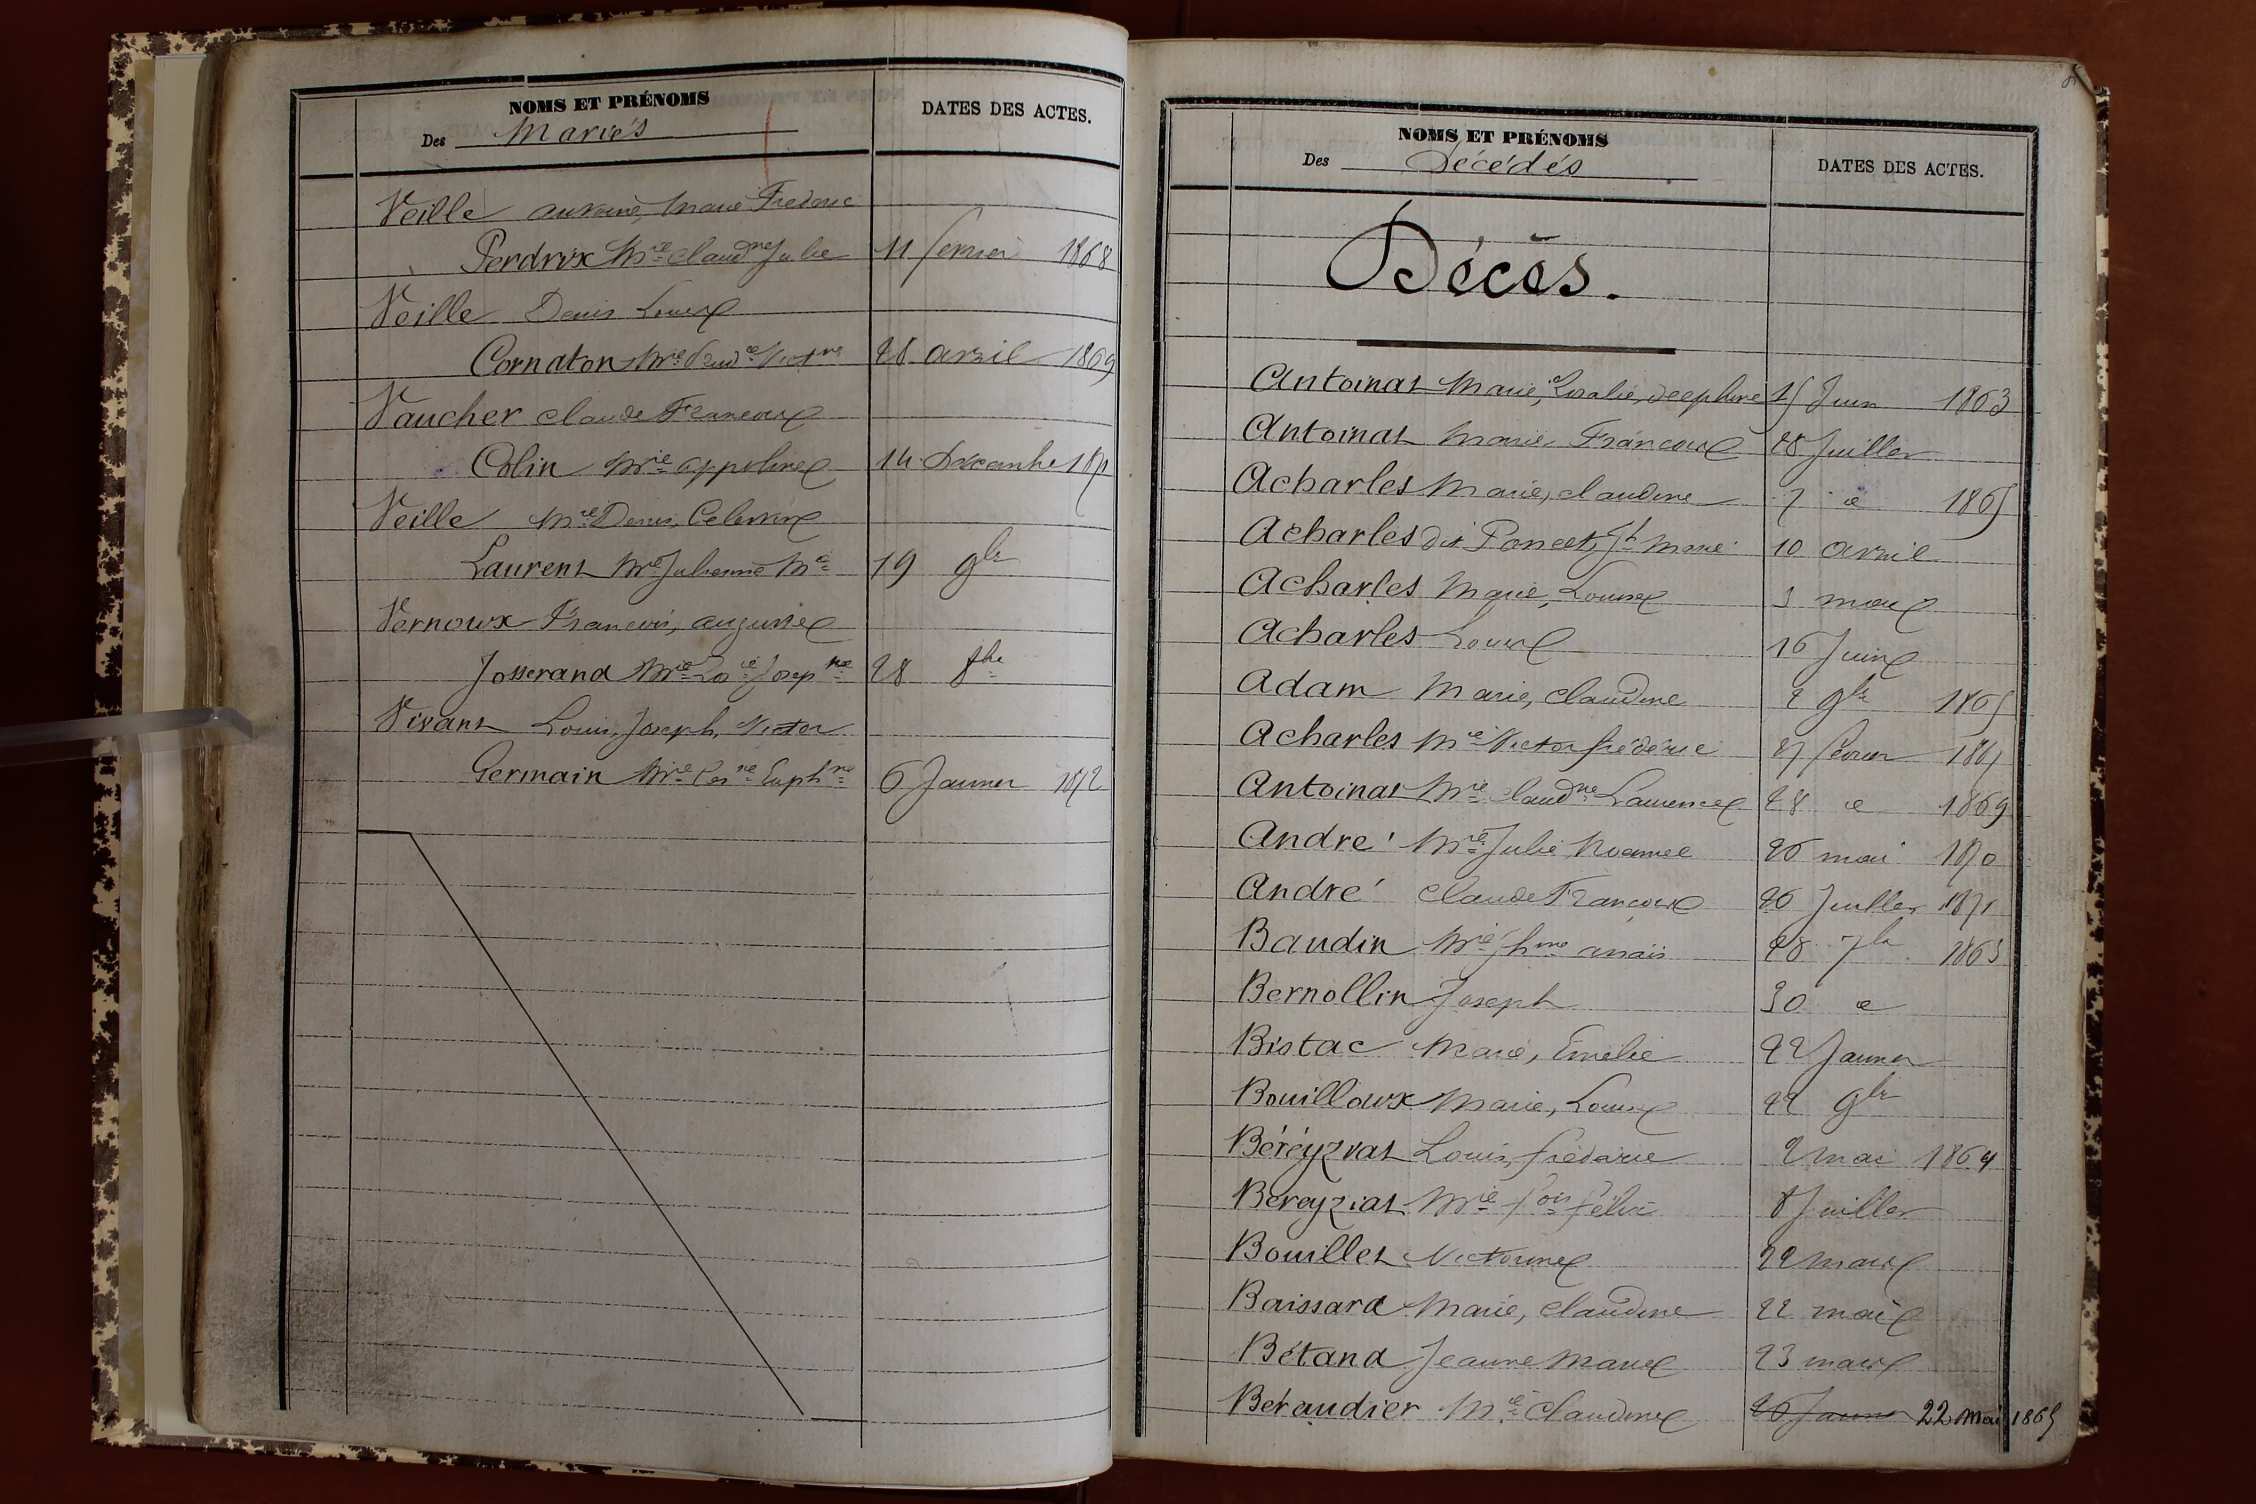 NOMS ET PRÉNOMS
Des Mariés
DATES DES ACTES.
Veille Marie Frederic
Perdrix Mie Claudne Julie 11 fevrier 1868
Veille Denis Louis
Cornaton Mie 28 avril 1869
Vaucher Claude Francois
Colin Mie appoline 14 Decembre 1871
Veille Mie Denis, Celestin
Laurent Mie Julienne Mie 19 9bre
Vernoux Francois, auguste
Josserand Mie Josepne 28 8bre
Vivant Louis, Joseph, Victor
Germain Mie Euphne 6 Janvier 1872
NOMS ET PRÉNOMS
Des Décédés
DATES DES ACTES.
Décès.
Antoinat Marie, Rosalie, Josephine 15 Juin 1863
Antoinat Marie Francois 28 Juillet
Acharles Marie, claudine 7 1865
Acharles dit Poncet, Jh Marie 10 avril
Acharles Marie, Louise 3 mars
Acharles Louis 16 Juin
Adam Marie, Claudine 2 9bre 1865
Acharles Mie Victor frédéric 27 fevrier 1867
Antoinat Mie Claudne Laurence 28 1869
André Mie Julie Noemie 26 mai 1870
André Claude Francois 26 Juillet 1871
Baudin Mie Jhne anaïs 28 7bre 1863
Bernollin Joseph 30
Bistac Marie, Emélie 22 Janvier
Bouilloux Marie, Louise 22 9bre
Béréyziat Louis, frédéric 2 mai 1864
Bereyziat Mie fois félix 8 Juillet
Bouillet Victorine 22 mars
Baissard Marie, Claudine 22 mai
Bétand Jeanne Marie 23 mars
Béraudier Mie Claudine 26 Janvier 22 mai 1865